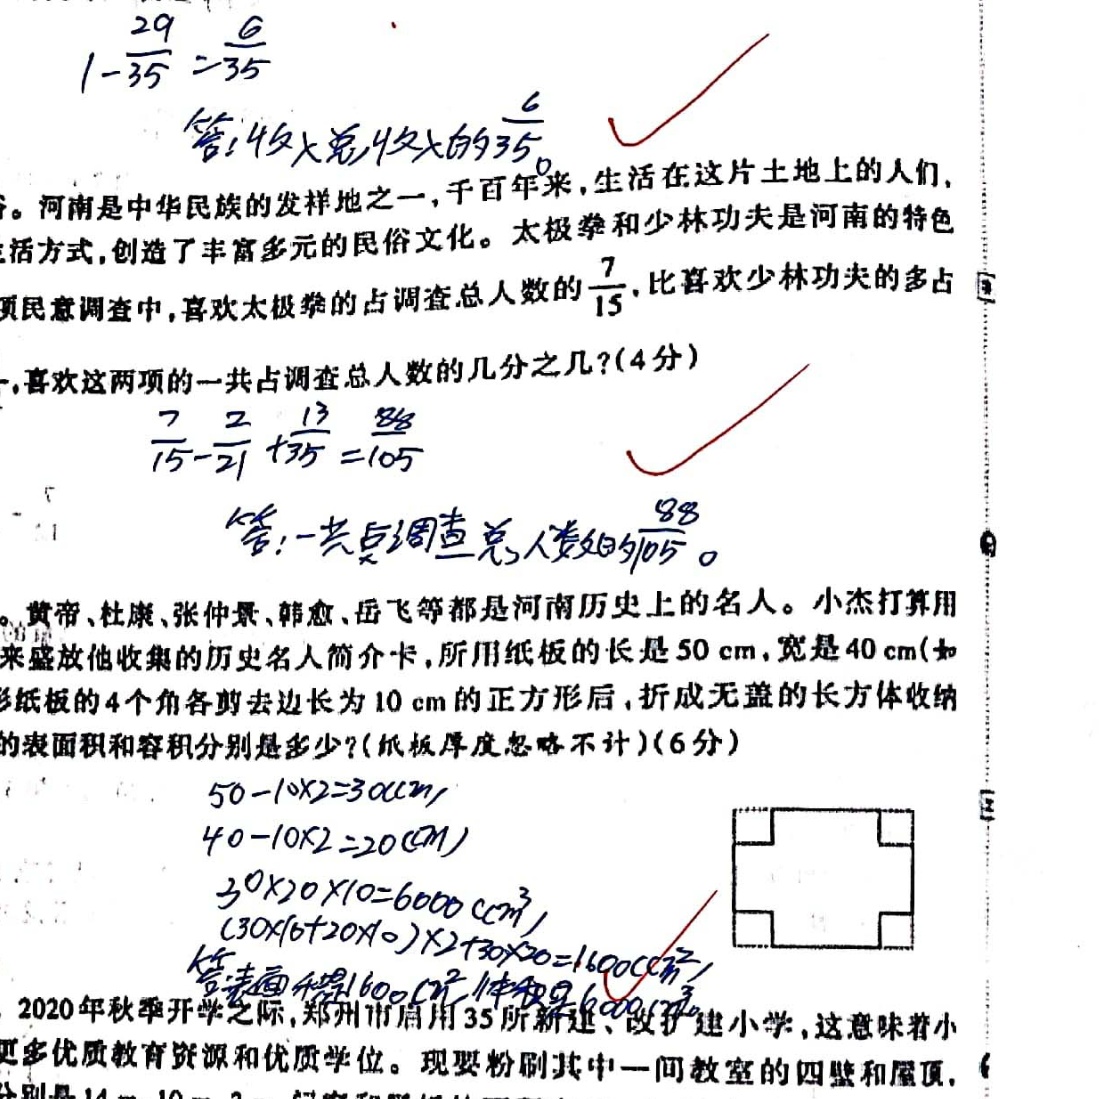 1-29/35=6/35
答:收入总收入的6/35。
。河南是中华民族的发祥地之一,千百年来,生活在这片土地上的人们,
活方式,创造了丰富多元的民俗文化。太极拳和少林功夫是河南的特色
项民意调查中,喜欢太极拳的占调查总人数的7/15,比喜欢少林功夫的多占
,喜欢这两项的一共占调查总人数的几分之几?(4分)
7/15-2/21+13/35=88/105
答:一共占调查总人数的88/105。
。黄帝、杜康、张仲景、韩愈、岳飞等都是河南历史上的名人。小杰打算用
来盛放他收集的历史名人简介卡,所用纸板的长是50 cm,宽是40 cm(如
形纸板的4个角各剪去边长为10 cm的正方形后,折成无盖的长方体收纳
的表面积和容积分别是多少?(纸板厚度忽略不计)(6分)
50-10×2=30(cm)
40-10×2=20(cm)
30×20×10=6000(cm³)
(30×10+20×10)×2+30×20=1600(cm²)
答:表面积是1600cm²,体积是6000cm³。
2020年秋季开学之际,郑州市启用35所新建、改扩建小学,这意味着小
更多优质教育资源和优质学位。现要粉刷其中一间教室的四壁和屋顶,
分别是14 m、10 m、3 m